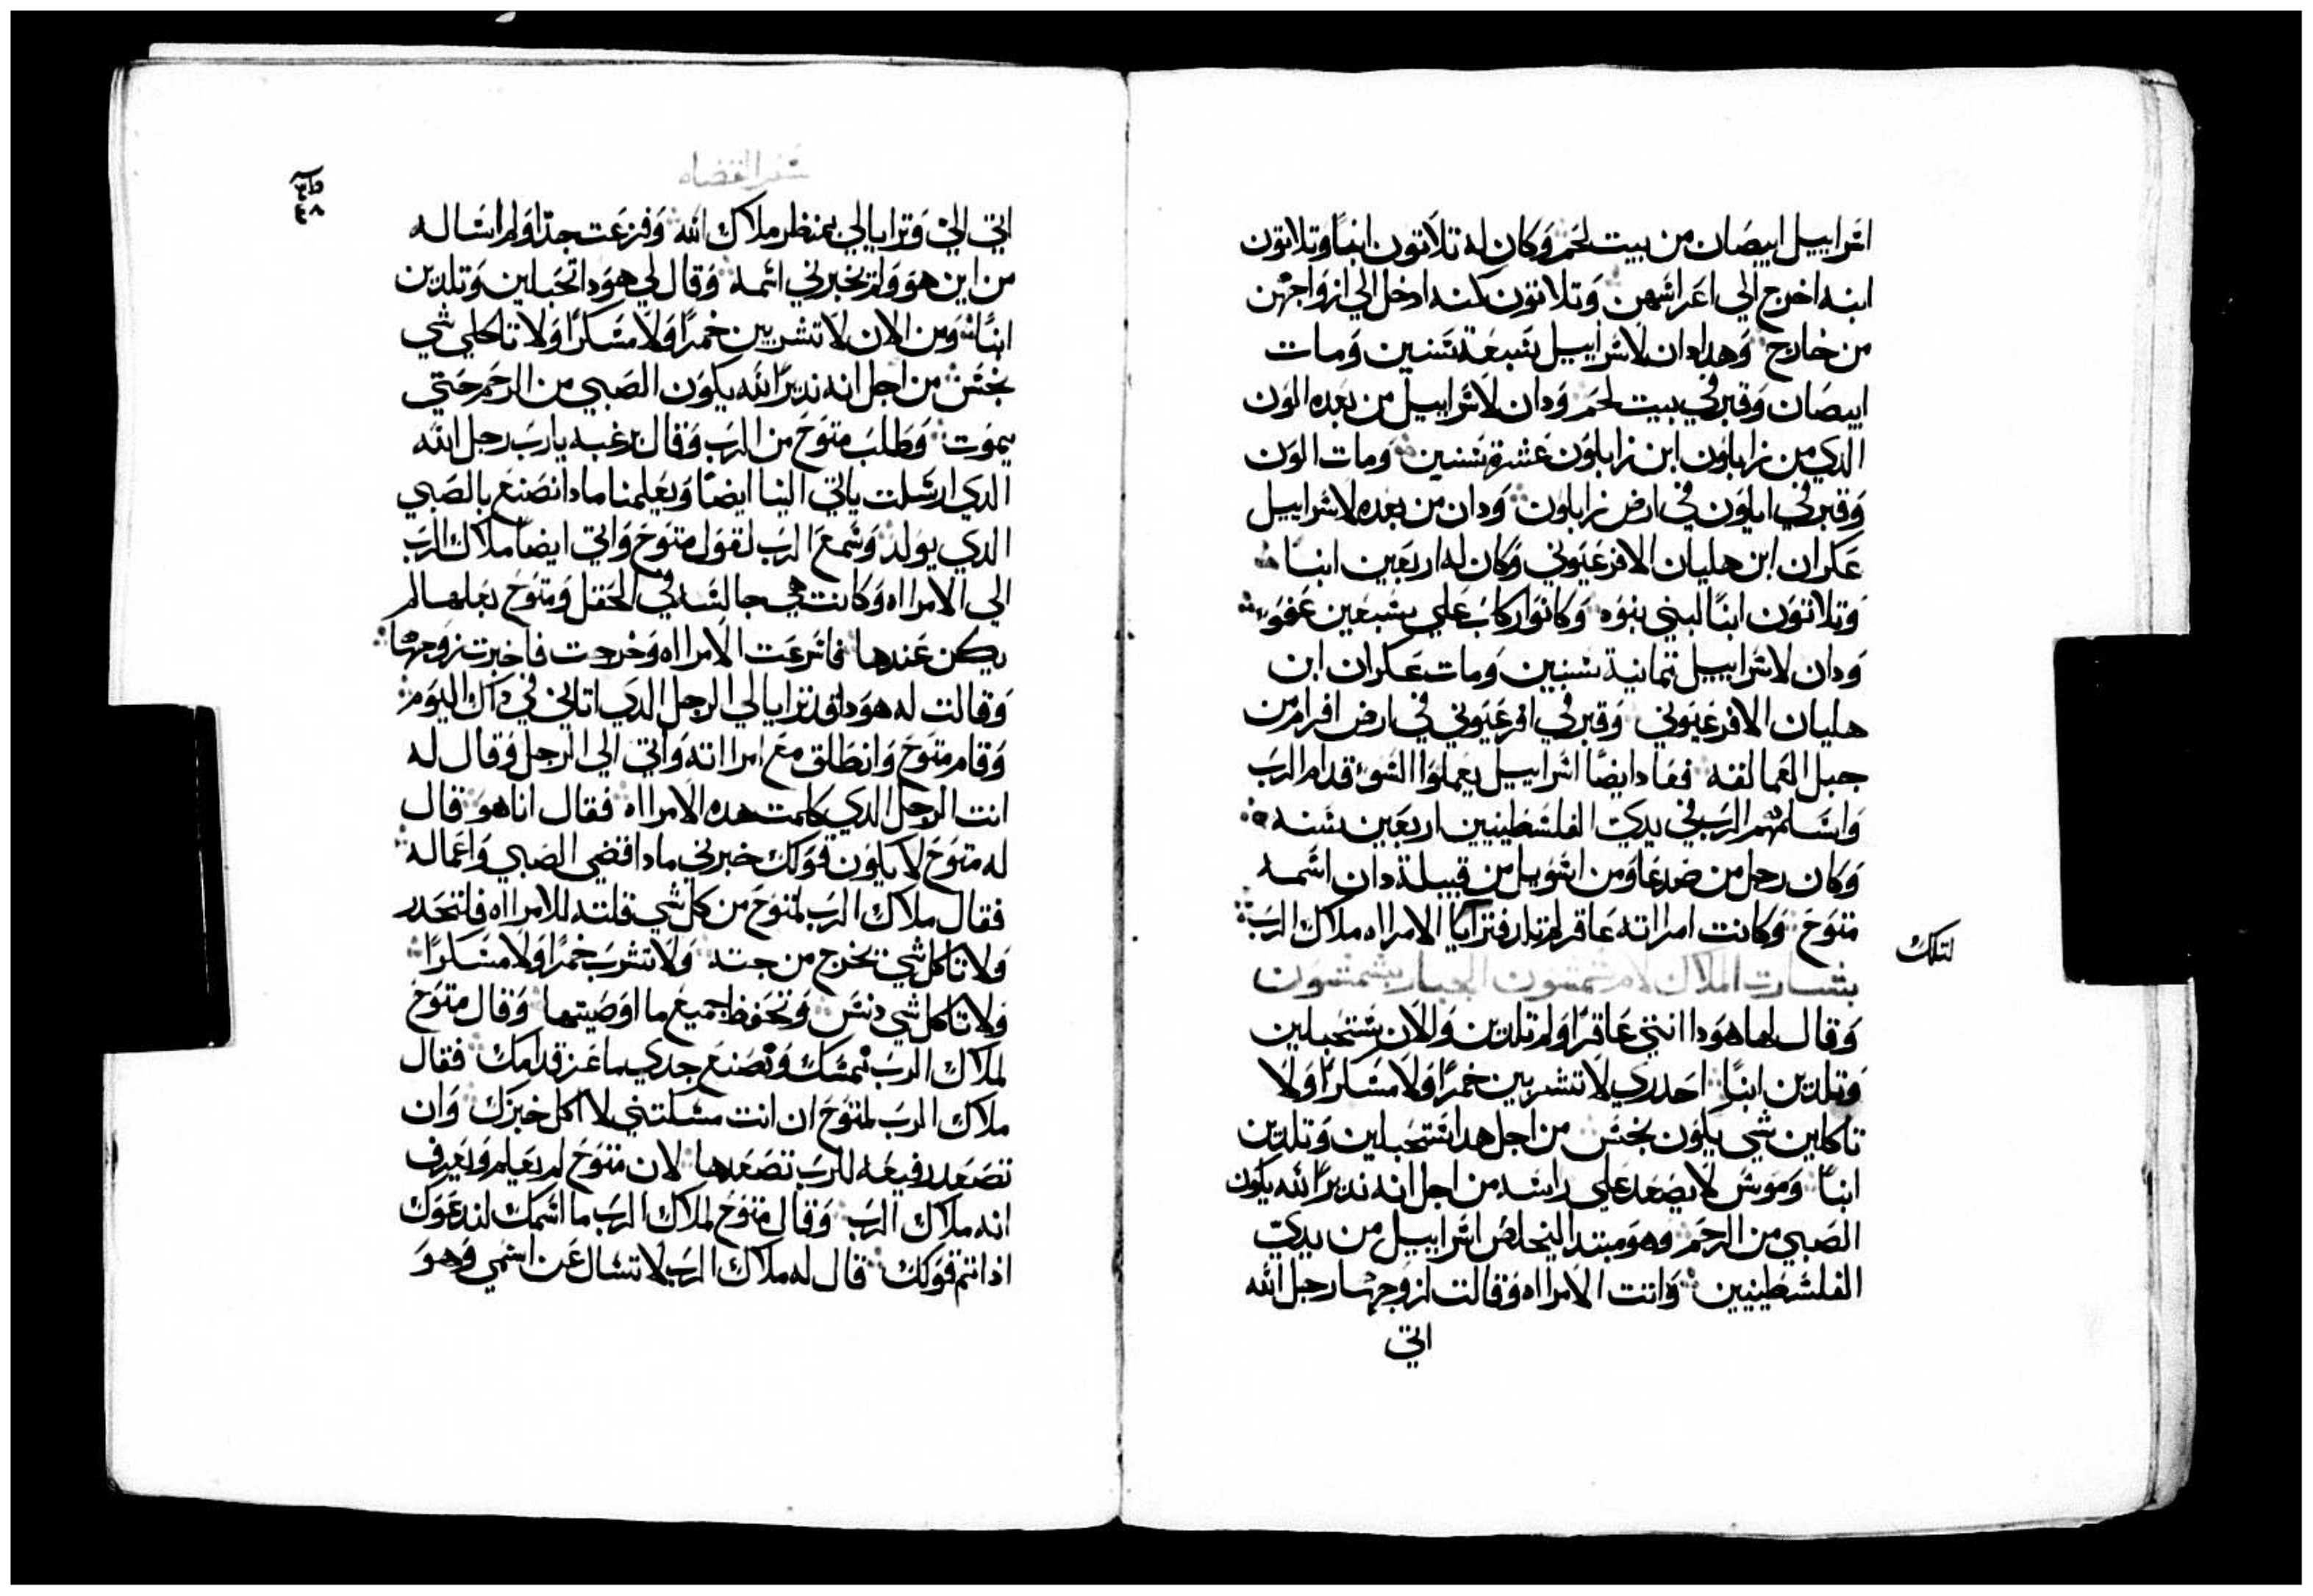 اسراييل ابيصان من بيت لحم وكان له تلاتون ابنا وتلاتون
ابنه اخرج الي اعراسهن وتلاتون كنه ادخل الي ازواجهن
من خارج وهدا دان لاسراييل سبعة سنين ومات
ابيصان وقبر في بيت لحم ودان لاسراييل من بعده الون
الدي من زابلون ابن زابلون عشرة سنين ومات الون
وقبر في ايلون في ارض زابلون ودان من بعده لاسراييل
عكران ابن هليان الافرعتوني وكان له اربعين ابنا
وتلاتون ابنا لبني بنوه وكانوا ركاب علي سبعين عفو
ودان لاسراييل تمانية سنين ومات عكران ابن
هليان الافرعتوني وقبر في افرعتوني في ارض افرام من
جبل العمالقه فعاد ايضا اسراييل يعملوا السوء قدام الرب
واسلمهم الرب في يدي الفلسطينيين اربعين سنه
وكان رجل من صدعا ومن اشويل من قبيلة دان اسمه
متوح وكانت امراته عاقر لم تلد فترايا الامراه ملاك الرب
لتلك
بشارت الملاك لام شمشون الجبار بشمشون
وقال لها هودا انتي عاقرا ولم تلدين والان ستحبلين
وتلدين ابنا احدري لا تشربين خمرا ولا مسكرا ولا
تاكلين شي يكون نجس من اجل هدا ستحبلين وتلدين
ابنا وموس لا يصعد علي راسه من اجل انه نديرا لله يكون
الصبي من الرحم وهو مبتدا ليخلص اسراييل من يدي
الفلسطينيين واتت الامراه وقالت لزوجها رجل الله
اتي
سفر القضاه
اتي الي وترايا لي بمنظر ملاك الله وفزعت جدا ولم اساله
من اين هو ولم يخبرني اسمه وقال لي هودا تحبلين وتلدين
ابنا ومن الان لا تشربين خمرا ولا مسكرا ولا تاكلي شي
نجس من اجل انه نديرا لله يكون الصبي من الرحم حتي
يموت وطلب متوح من الرب وقال برغبه يارب رجل الله
الدي ارسلت ياتي الينا ايضا ويعلمنا مادا نصنع بالصبي
الدي يولد وسمع الرب لقول متوح واتي ايضا ملاك الرب
الي الامراه وكانت هي جالسه في الحقل ومتوح بعلها لم
يكن عندها فاسرعت الامراه وخرجت فاخبرت زوجها
وقالت له هودا قد ترايا لي الرجل الدي اتاني في داك اليوم
وقام متوح وانطلق مع امراته واتي الي الرجل وقال له
انت الرجل الدي كلمت هده الامراه فقال انا هو قال
له متوح لا يكون قولك خبرني مادا قضي الصبي واعماله
فقال ملاك الرب لمتوح من كل شي قلته للامراه فلتحدر
ولا تاكل شي تخرج من جتنه ولا تشرب خمرا ولا مسكرا
ولا تاكل شي دنس وتحفظ جميع ما اوصيتها وقال متوح
لملاك الرب نمسك ونصنع جدي ماعز قدامك فقال
ملاك الرب لمتوح ان انت مسكتني لا اكل خبزك وان
تصعد رفيعه للرب تصعدها لان متوح لم يعلم ويعرف
انه ملاك الرب وقال متوح لملاك الرب ما اسمك لندعوك
ادا تم قولك قال له ملاك الرب لا تسال عن اسمي وهو